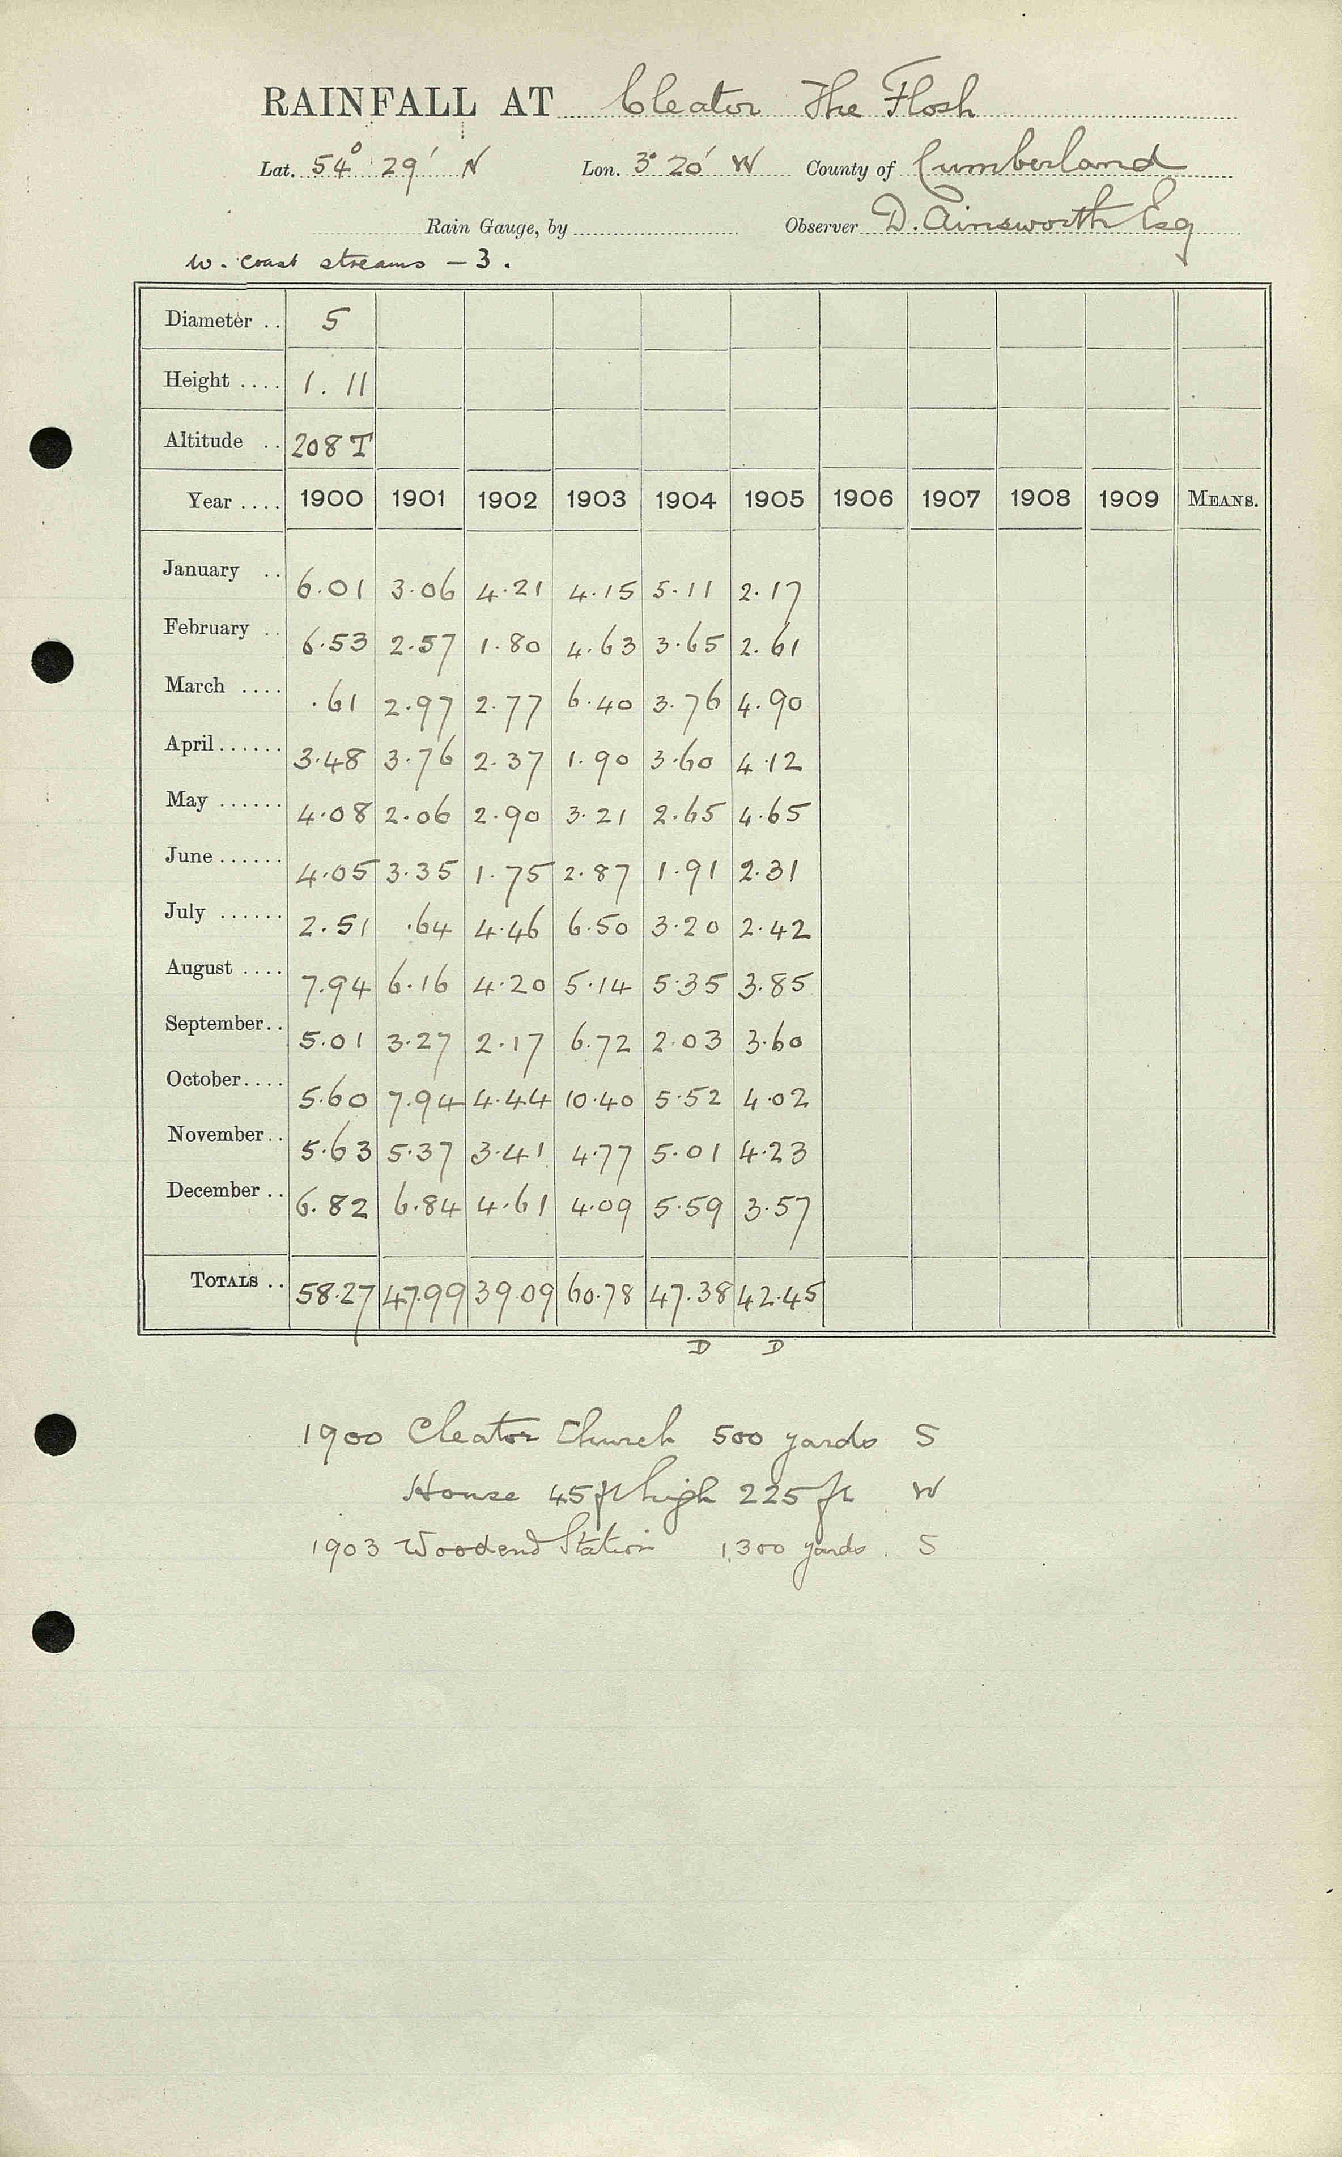 RAINFALL AT Cleator The Flosh
Lat. 54° 29' N Lon. 3° 20' W County of Cumberland
Rain Gauge, by Observer D. Ainsworth Esq
W. Coast streams - 3.
Diameter .. 5
Height .... 1. 11
Altitude .. 208 T
Year .... 1900 1901 1902 1903 1904 1905 1906 1907 1908 1909 MEANS.
January .. 6.01 3.06 4.21 4.15 5.11 2.17
February .. 6.53 2.57 1.80 4.63 3.65 2.61
March .... .61 2.97 2.77 6.40 3.76 4.90
April...... 3.48 3.76 2.37 1.90 3.60 4.12
May ...... 4.08 2.06 2.90 3.21 2.65 4.65
June ...... 4.05 3.35 1.75 2.87 1.91 2.31
July ...... 2.51 .64 4.46 6.50 3.20 2.42
August .... 7.94 6.16 4.20 5.14 5.35 3.85
September.. 5.01 3.27 2.17 6.72 2.03 3.60
October.... 5.60 7.94 4.44 10.40 5.52 4.02
November.. 5.63 5.37 3.41 4.77 5.01 4.23
December .. 6.82 6.84 4.61 4.09 5.59 3.57
TOTALS .. 58.27 47.99 39.09 60.78 47.38 42.45
D D
1900 Cleator Church 500 yards S
House 45 ft high 225 ft W
1903 Woodend Station 1,300 yards. S